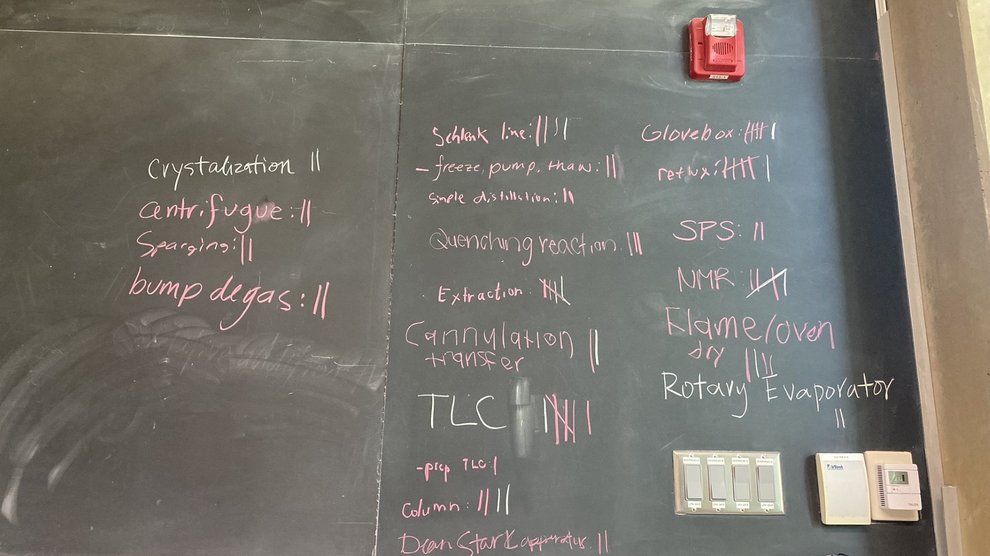 Crystalization ||
Centrifugue: ||
Sparging: ||
bump degas: ||
Schlenk line: ||||
- freeze, pump, thaw: ||
simple distillation: ||
Quenching reaction: |||
Extraction:
Cannylation ||
transfer
TLC
-prep TLC |
Column: ||||
Dean Stark apparatus: ||
Glovebox:
reflux:
SPS: ||
NMR:
Flame/oven
dry ||||
Rotary Evaporator
||